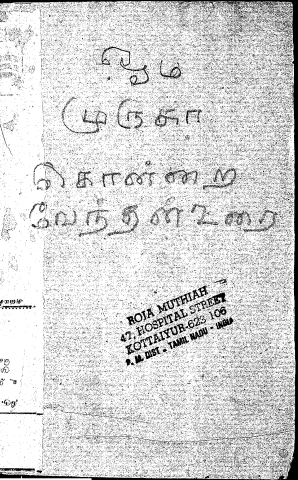 ஓம்
முருகா
கொன்றை
வேந்தன் உரை
ROJA MUTHIAH
47, HOSPITAL STREET
KOTTAIYUR-623 106
P. M. DIST - TAMIL NADU - INDIA